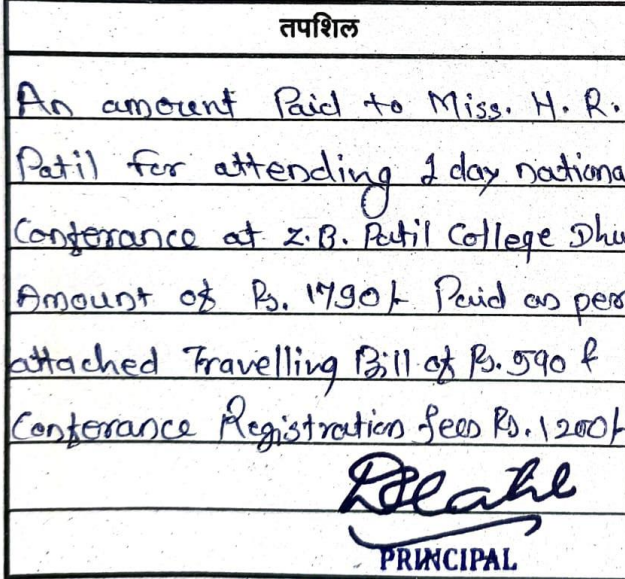 तपशिल
An amount Paid to Miss. H. R.
Patil for attending 2 day nationa
Conferance at Z.B. Patil College Dhu
Amount of Rs. 1790/- Paid as per
attached Travelling Bill of Rs. 590 &
Conferance Registration fees Rs. 1200/-
PRINCIPAL